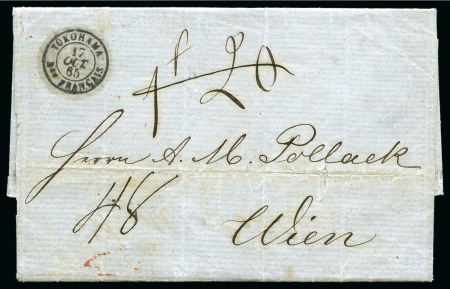 YOKOHAMA
17
OCT
65
Bau FRANÇAIS
1f 20
Herrn A. M. Pollack
48
Wien